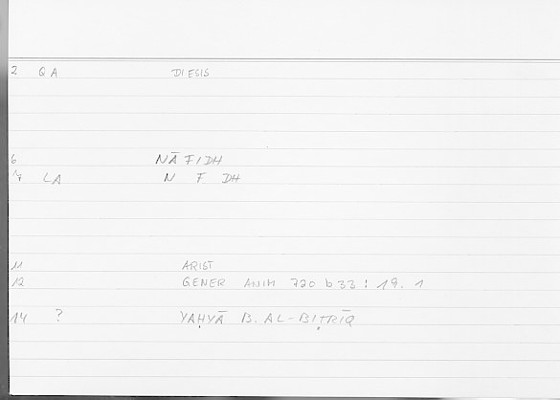 2 QA DIESIS
6 NĀFIDH
7 LA N F DH
11 ARIST
12 GENER ANIM 720 b 33 : 19. 1
14 ? YAḤYĀ B. AL-BIṬRĪQ